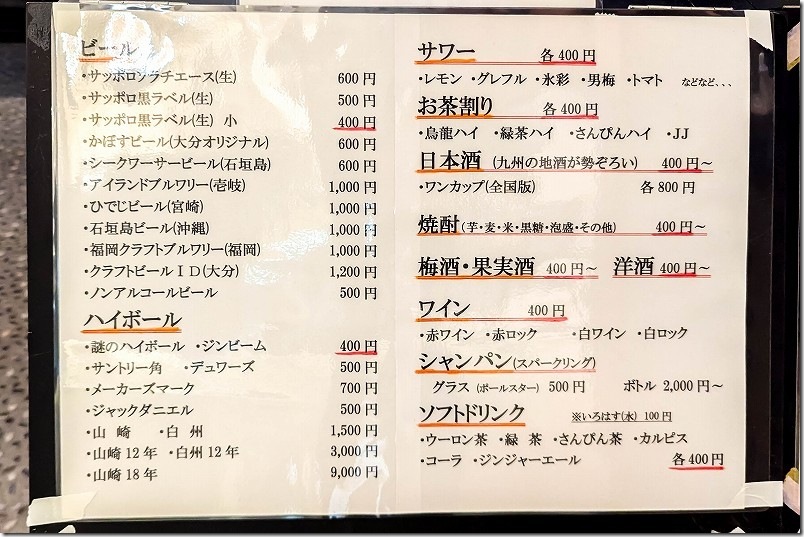 ビール
・サッポロソラチエース(生) 600円
・サッポロ黒ラベル(生) 500円
・サッポロ黒ラベル(生) 小 400円
・かぼすビール(大分オリジナル) 600円
・シークワーサービール(石垣島) 600円
・アイランドブルワリー(壱岐) 1,000円
・ひでじビール(宮崎) 1,000円
・石垣島ビール(沖縄) 1,000円
・福岡クラフトブルワリー(福岡) 1,000円
・クラフトビールＩＤ(大分) 1,200円
・ノンアルコールビール 500円
ハイボール
・謎のハイボール ・ジンビーム 400円
・サントリー角 ・デュワーズ 500円
・メーカーズマーク 700円
・ジャックダニエル 500円
・山崎 ・白州 1,500円
・山崎12年 ・白州12年 3,000円
・山崎18年 9,000円
サワー 各400円
・レモン ・グレフル ・氷彩 ・男梅 ・トマト などなど、、、
お茶割り 各400円
・烏龍ハイ ・緑茶ハイ ・さんぴんハイ ・JJ
日本酒 (九州の地酒が勢ぞろい) 400円～
・ワンカップ(全国版) 各800円
焼酎(芋・麦・米・黒糖・泡盛・その他) 400円～
梅酒・果実酒 400円～ 洋酒 400円～
ワイン 400円
・赤ワイン ・赤ロック ・白ワイン ・白ロック
シャンパン(スパークリング)
グラス (ポールスター) 500円 ボトル 2,000円～
ソフトドリンク ※いろはす(水) 100円
・ウーロン茶 ・緑茶 ・さんぴん茶 ・カルピス
・コーラ ・ジンジャーエール 各400円